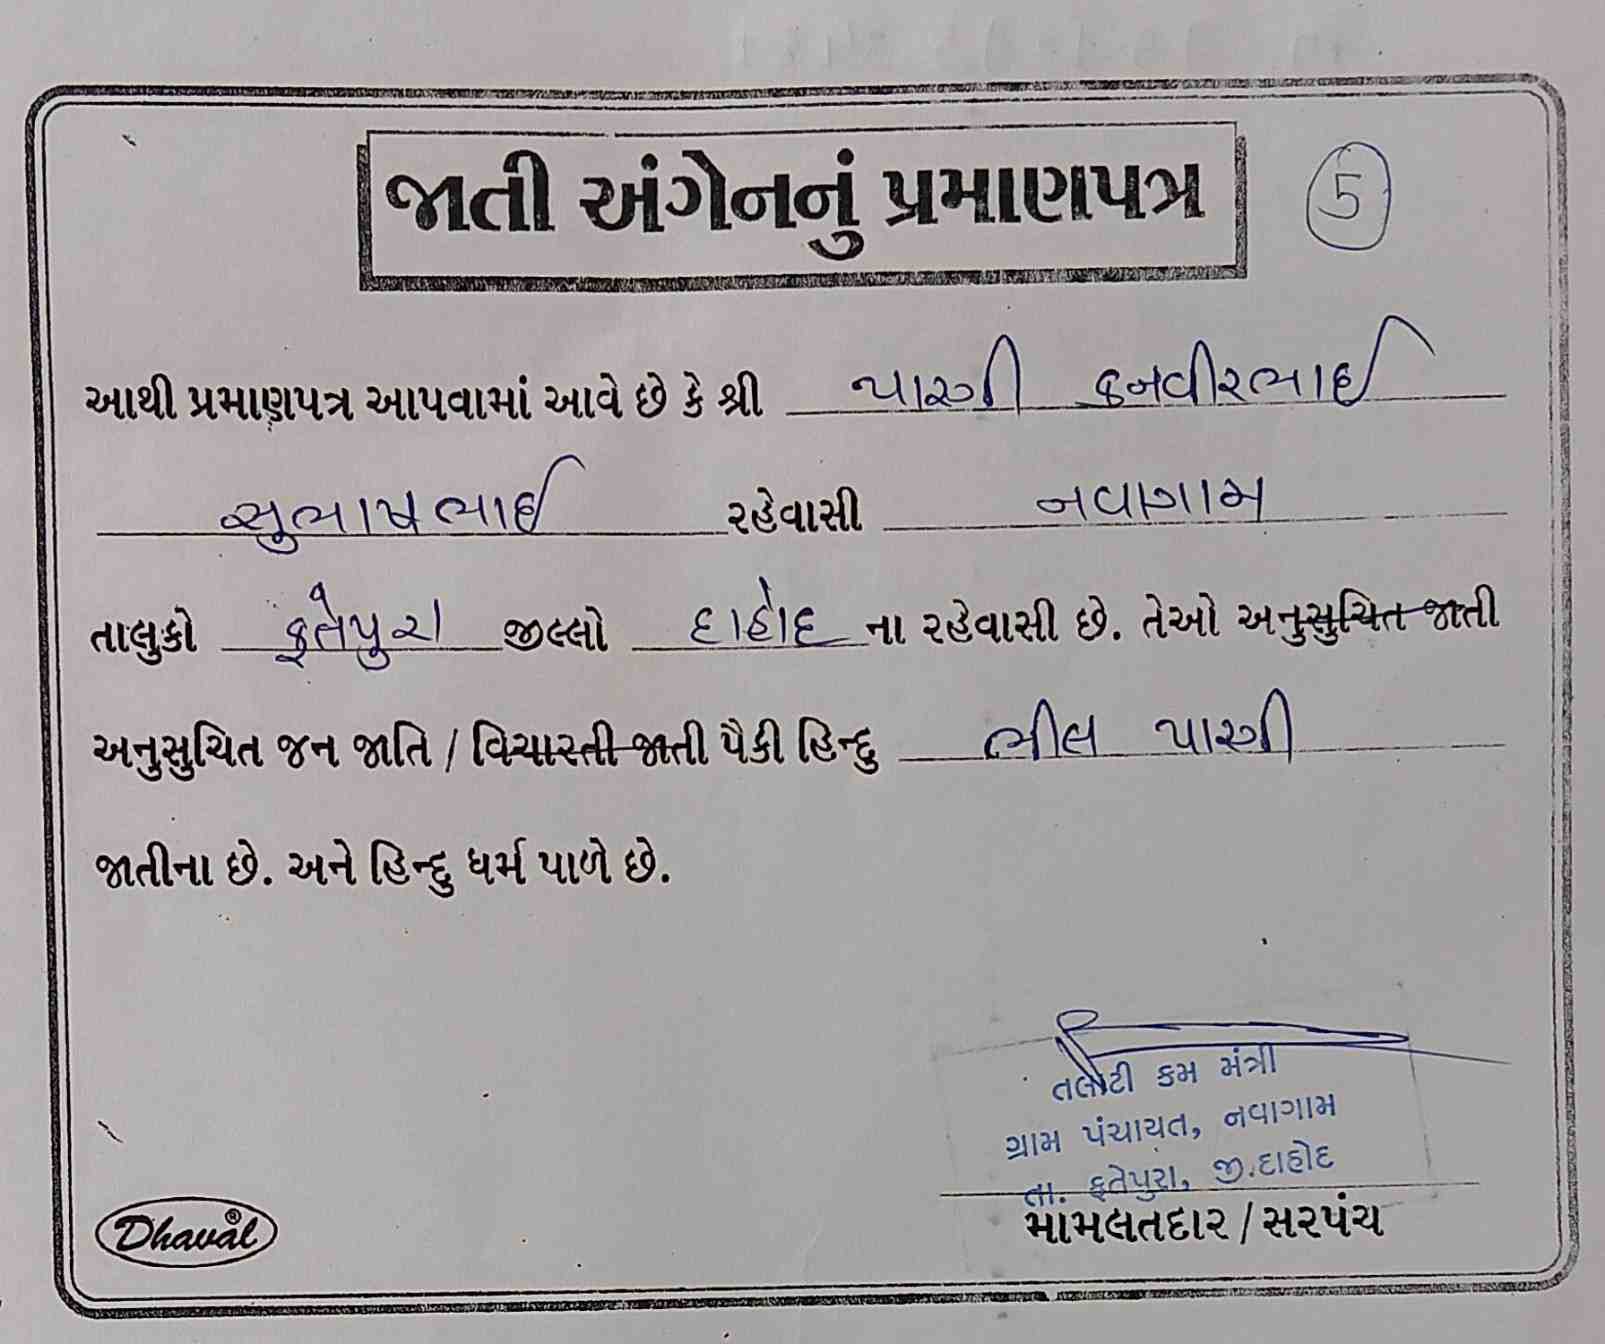 જાતી અંગેનનું પ્રમાણપત્ર
5
આથી પ્રમાણપત્ર આપવામાં આવે છે કે શ્રી પારગી કનવીરભાઈ
સુભાષભાઈ રહેવાસી નવાગામ
તાલુકો ફતેપુરા જીલ્લો દાહોદ ના રહેવાસી છે. તેઓ અનુસુચિત જાતી
અનુસુચિત જન જાતિ / વિચારતી જાતી પૈકી હિન્દુ ભીલ પારગી
જાતીના છે. અને હિન્દુ ધર્મ પાળે છે.
તલાટી કમ મંત્રી
ગ્રામ પંચાયત, નવાગામ
તા. ફતેપુરા, જી.દાહોદ
મામલતદાર / સરપંચ
Dhaval®